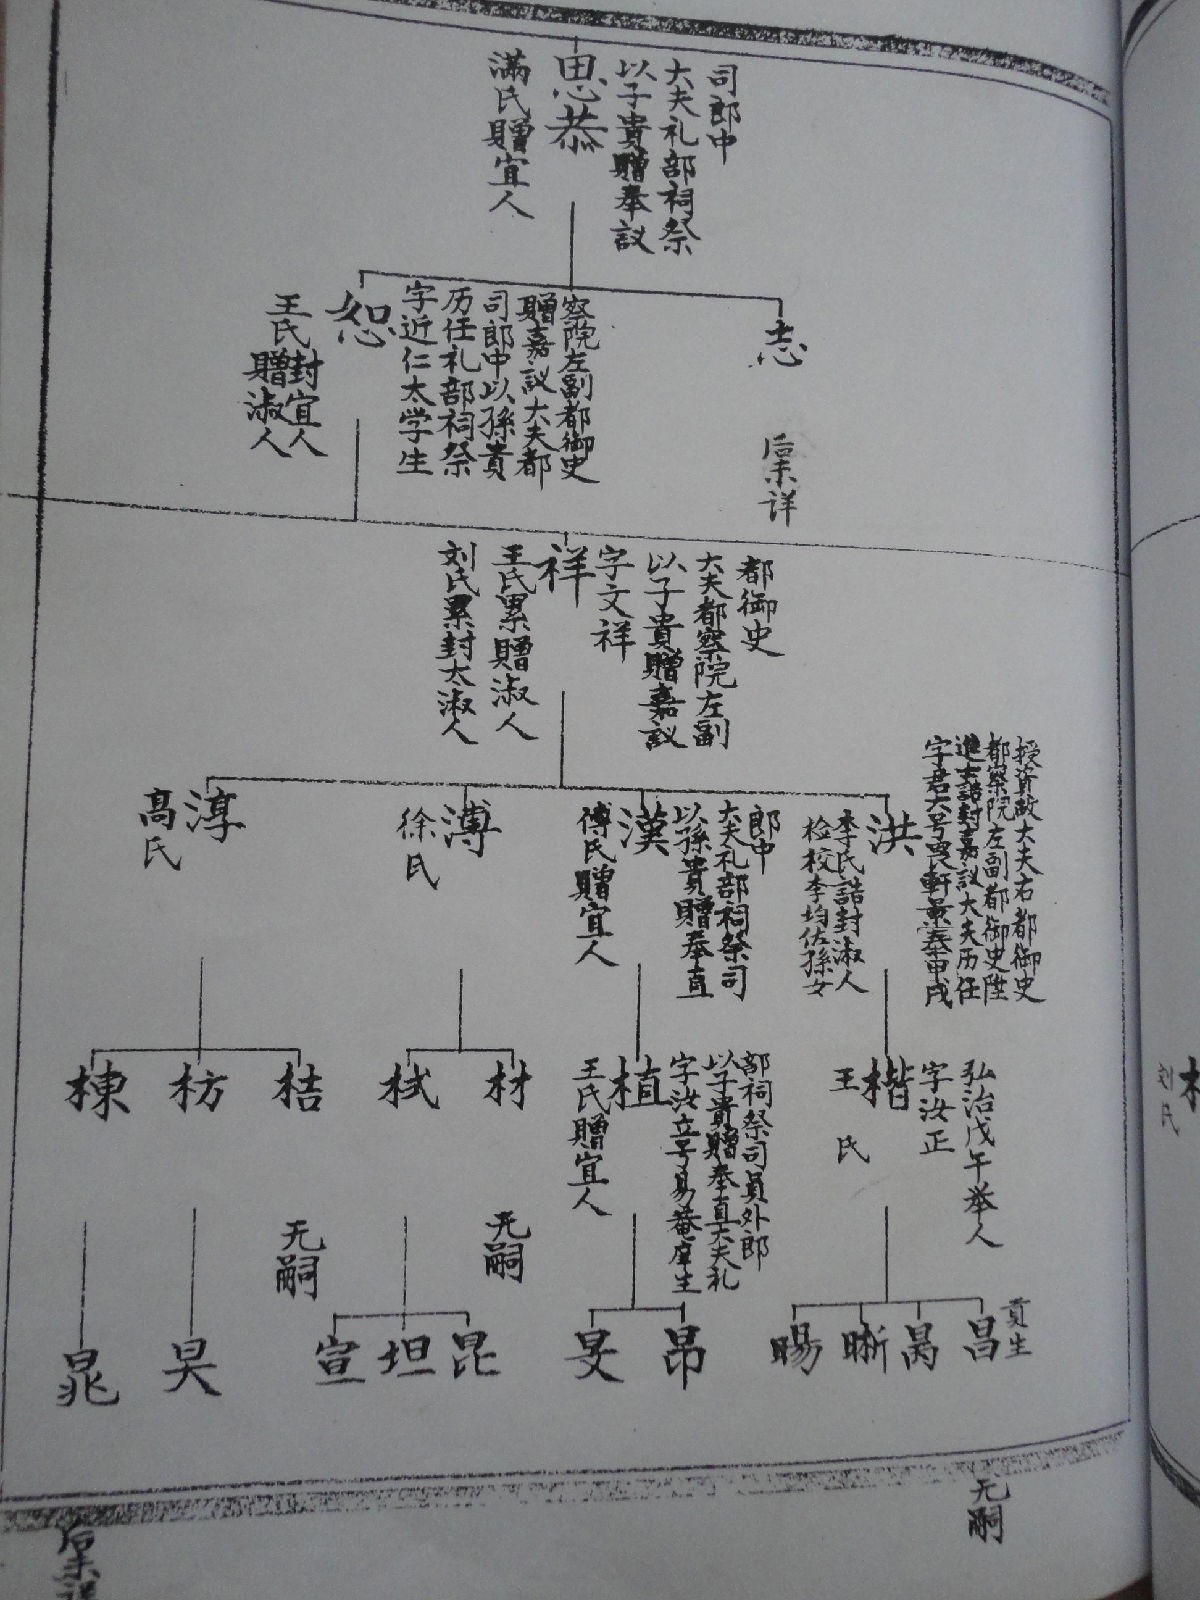 思恭
以子貴贈奉議
大夫礼部祠祭
司郎中
滿氏贈宜人
志
后未详
恕
字近仁太学生
历任礼部祠祭
司郎中以孫貴
贈嘉议大夫都
察院左副都御史
王氏封宜人
贈淑人
祥
字文祥
以子貴贈嘉议
大夫都察院左副
都御史
王氏累贈淑人
刘氏累封太淑人
洪
字君大号 軒景泰甲戌
進士誥封嘉议大夫历任
都察院左副都御史陞
授資政大夫右都御史
李氏誥封淑人
检校李均佐孫女
漢
以孫貴贈奉直
大夫礼部祠祭司
郎中
傅氏贈宜人
溥
徐氏
淳
高氏
楷
字汝正
弘治戊午举人
王氏
植
字汝立号易菴庠生
以子貴贈奉直大夫礼
部祠祭司員外郎
王氏贈宜人
材
无嗣
栻
桔
无嗣
枋
棟
昌
貢生
无嗣
晹
晣
昂
旻
昆
坦
宣
昊
晁
后未详
刘氏